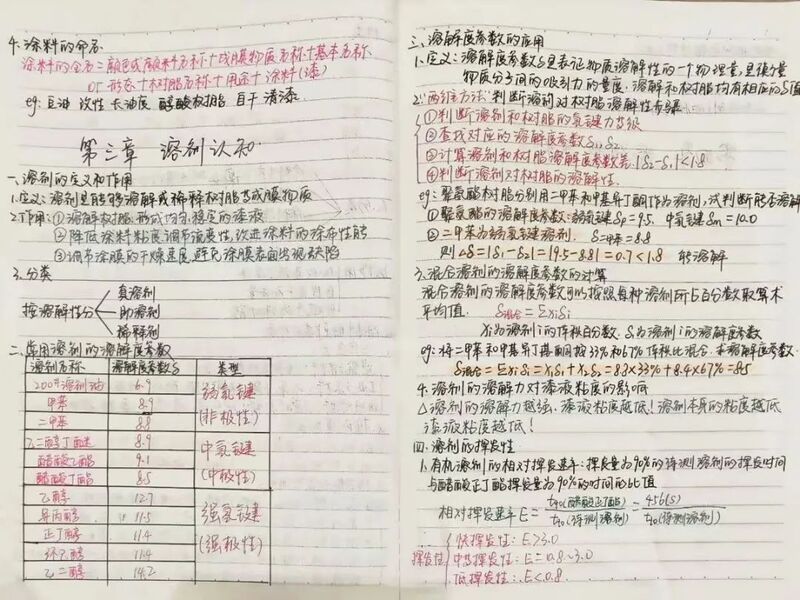 4. 涂料的命名
涂料的全名=颜色或颜料名称+成膜物质名称+基本名称
or 形态+树脂名称+用途+涂料(漆)
eg: 豆油 改性 长油度 醇酸树脂 自干 清漆.
第三章 溶剂认知.
一、溶剂的定义和作用
1.定义: 溶剂是能够溶解或稀释树脂等成膜物质
2.作用: ①溶解树脂,形成均匀稳定的漆液
②降低涂料粘度,调节流变性,改进涂料的涂布性能
③调节涂膜的干燥速度,避免涂膜表面出现缺陷
3.分类
按溶解性分
真溶剂
助溶剂
稀释剂
二、常用溶剂的溶解度参数
溶剂名称 溶解度参数δ 类型
200#溶剂油 6.9 弱氢键
甲苯 8.9
二甲苯 8.8 (非极性)
乙二醇丁醚 8.9 中氢键
醋酸乙酯 9.1
醋酸丁酯 8.5 (中极性)
乙醇 12.7
异丙醇 11.5 强氢键
正丁醇 11.4 (强极性)
环己醇 11.4
乙二醇 14.2
三、溶解度参数的应用
1.定义: 溶解度参数δ是表征物质溶解性的一个物理量,是衡量
物质分子间的吸引力的量度.溶解和树脂均有相应的δ值
2."两维方法"判断溶剂对树脂溶解性步骤
①判断溶剂和树脂的氢键力等级
②查找对应的溶解度参数δ₁,δ₂.
③计算溶剂和树脂溶解度参数差|δ₂-δ₁|<1.8
④判断溶剂对树脂的溶解性.
eg: 聚氨酯树脂分别用二甲苯和甲基异丁酮作为溶剂,试判断能否溶解
①聚氨酯的溶解度参数: 弱氢键δp=9.5. 中氢键δm=10.0
②二甲苯为弱氢键溶剂. δ二甲苯=8.8
则△δ=|δ₁-δ₂|=|9.5-8.8|=0.7<1.8 能溶解
3.混合溶剂的溶解度参数的计算
混合溶剂的溶解度参数可以按照每种溶剂所占百分数取算术
平均值. δ混合=Σxiδi
xi为溶剂i的体积百分数. δi为溶剂i的溶解度参数
eg: 将二甲苯和甲基异丁基酮按33%和67%体积比混合.求溶解度参数
δ混合=Σxiδi=x₁δ₁+x₂δ₂=8.8×33%+8.4×67%=8.5
4.溶剂的溶解力对漆液粘度的影响
△溶剂的溶解力越强,漆液粘度越低!溶剂本身的粘度越低
漆液粘度越低!
四、溶剂的挥发性
1.有机溶剂的相对挥发速率: 挥发量为90%的评测溶剂的挥发时间
与醋酸正丁酯挥发量为90%的时间的比值
相对挥发速率E=t90(醋酸正丁酯)/t90(待测溶剂)=456(s)/t90(待测溶剂)
挥发性
快挥发性: E>3.0
中等挥发性: E=0.8~3.0
低挥发性: E<0.8